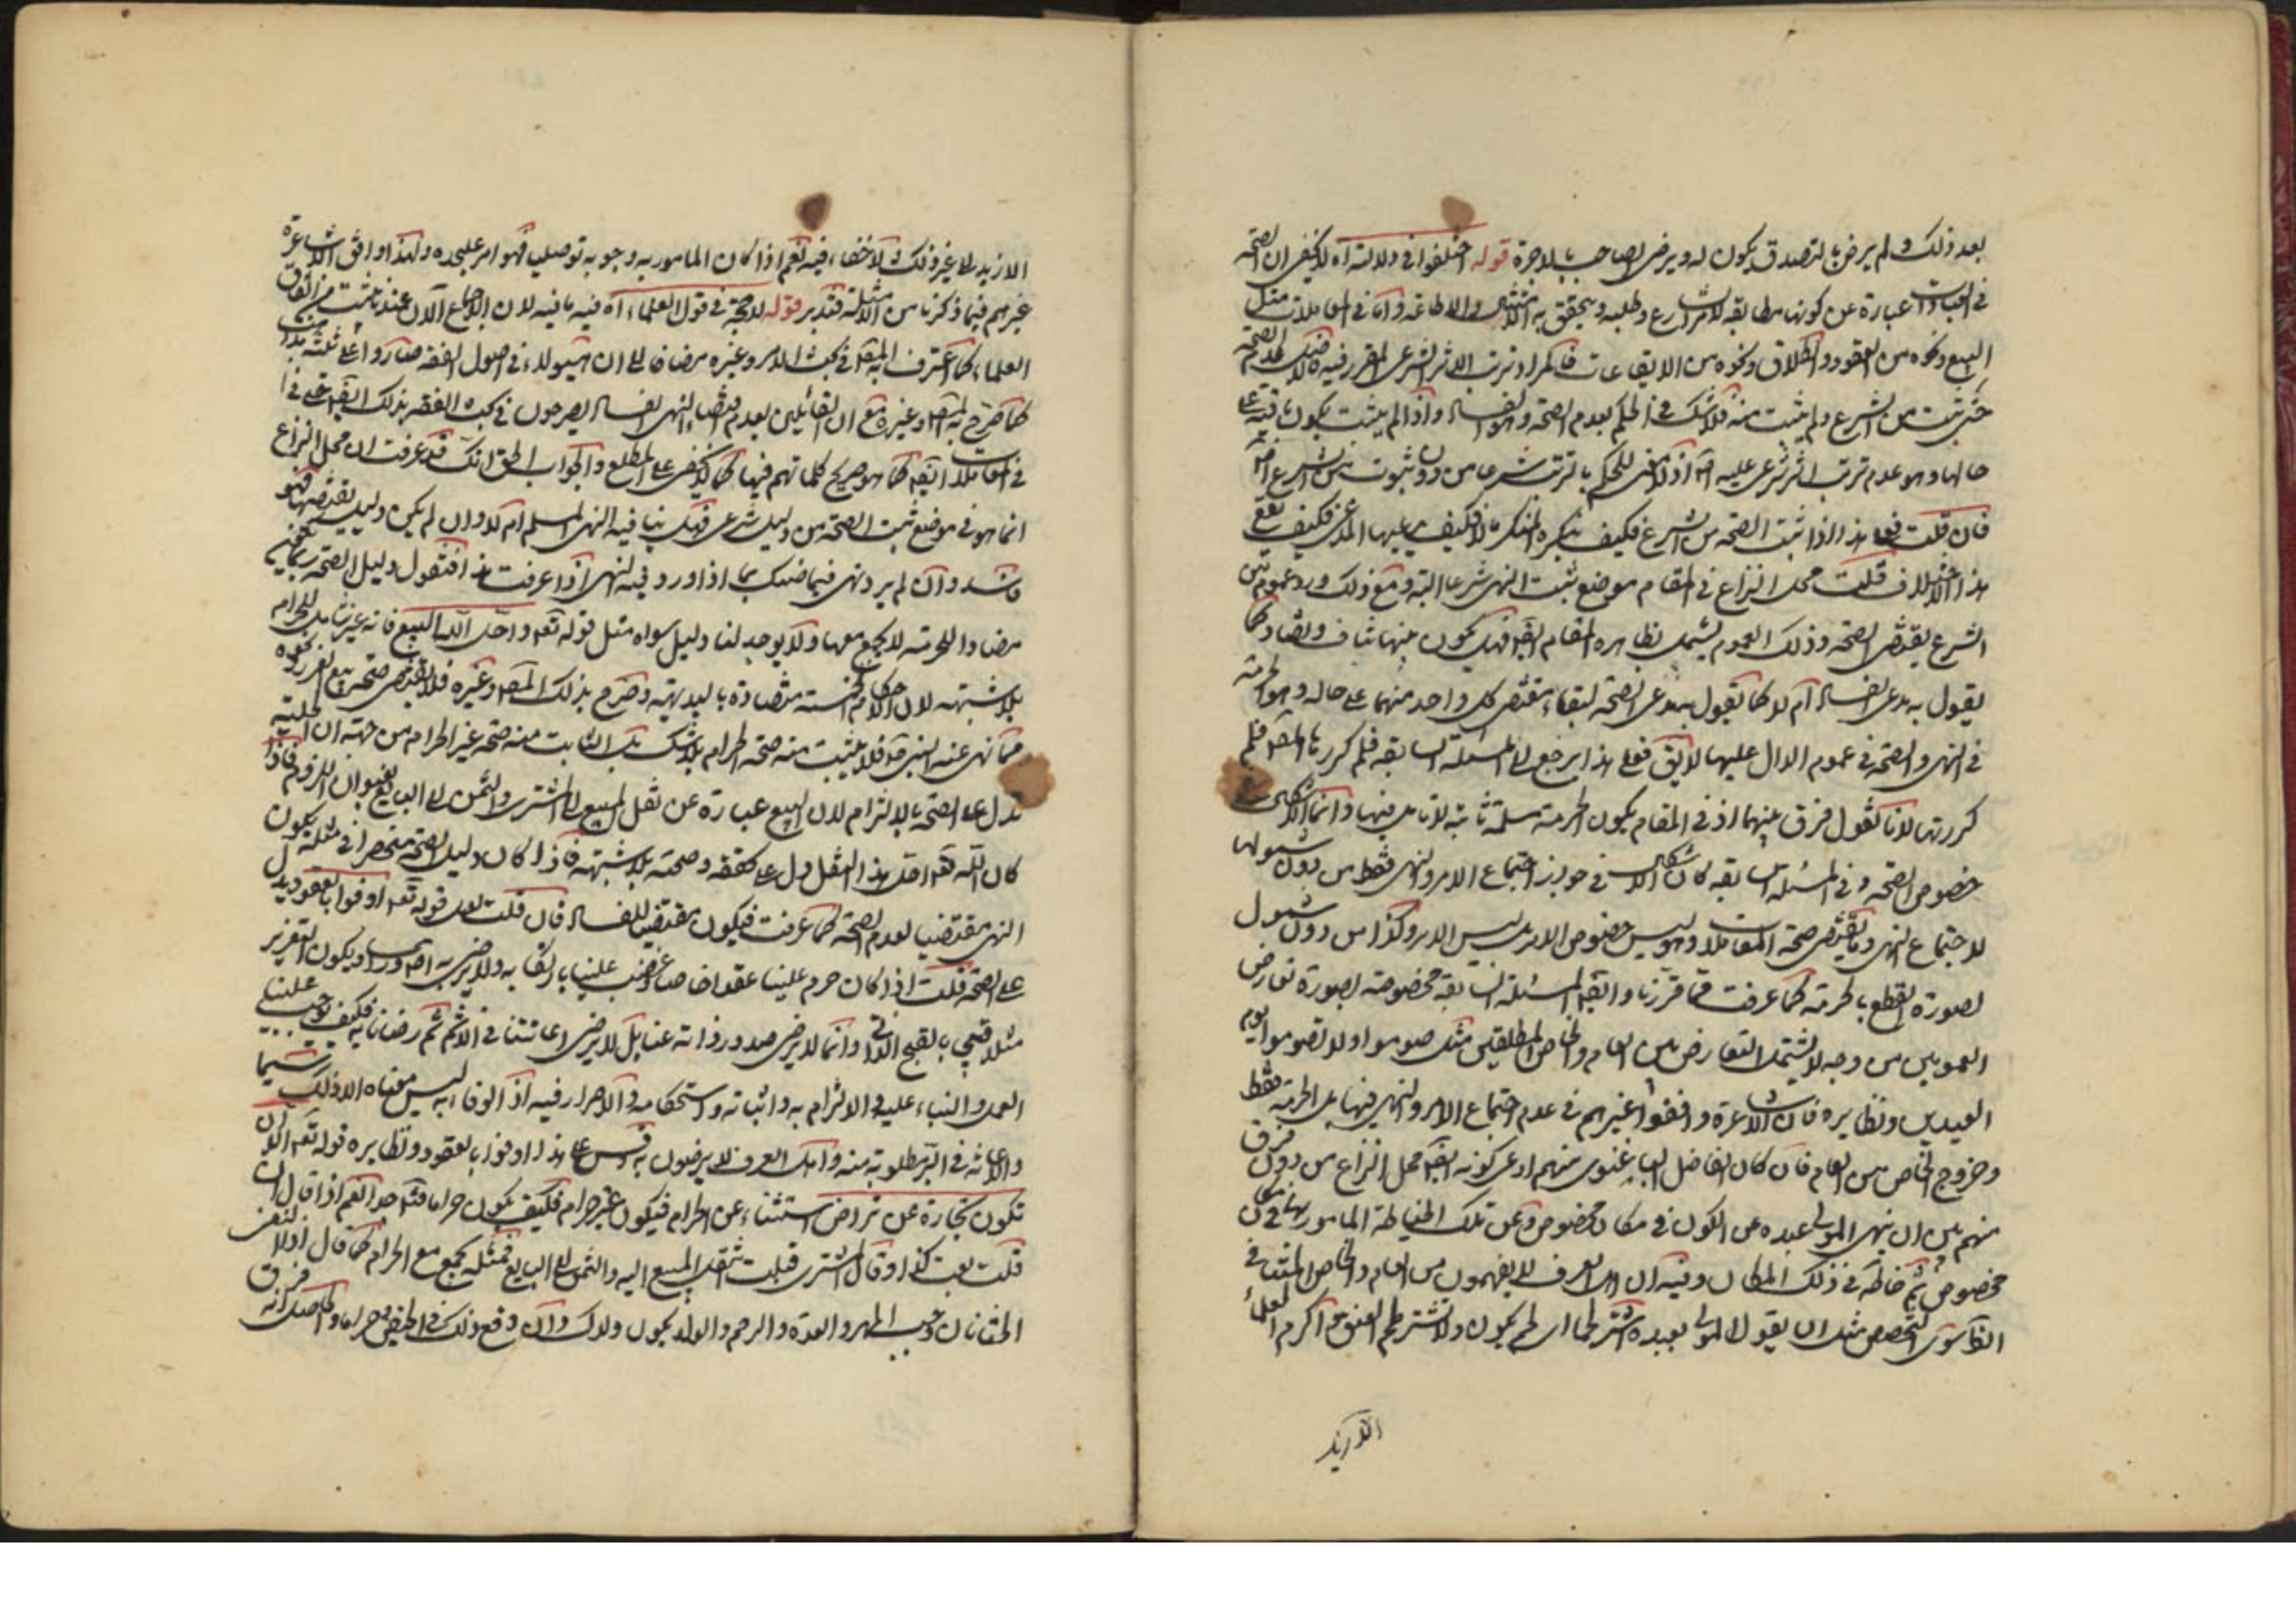 بعد ذلك ولم يرض بالتصدق يكون له ويرضى لصاحب بالاجرة قوله اختلفوا في دلالته آه لا يخفى ان الصحة
في العبادات عبارة عن كونها مطابقة لامر الشارع وطلبه ويتحقق به الامتثال والاطاعة واما في المعاملات مثل
البيع ونحوه من العقود والطلاق ونحوه من الايقاعات فالمراد ترتب الاثر الشرعي المقرر فيه
حتى يثبت من الشرع ولم يثبت منه فلا شك في الحكم بعدم الصحة وهو الفساد واذا لم يثبت يكون باقية على
حالها وهو عدم ترتب اثر شرعي عليه اذ لا معنى للحكم بالترتب شرعا من دون ثبوت من الشرع
فان قلت فعلى هذا اذا ثبت الصحة من الشرع فكيف ينكره المنكر فكيف يدعيها المدعي فكيف يقع
هذا الاختلاف قلت محل النزاع في المقام موضع ثبت النهي شرعا البتة ومع ذلك ورد عموم من
الشرع يقتضي الصحة وذلك العموم يشمل بظاهره المقام ايضا فهل يكون بينهما تناف وتضاد كما
يقول به مدعي الفساد ام لا كما يقول مدعي الصحة لبقاء مقتضى كل واحد منهما على حاله وهو الحرمة
في النهي والصحة في عموم الدال عليها لا يق فعلى هذا يرجع الى المسئلة السابقة فلم كررها المصنف فلم
كررتها لانا نقول فرق بينهما اذ في المقام يكون الحرمة مسلمة ثابتة لا تامل فيها وانما الاشكال في
خصوص الصحة وفي المسئلة السابقة كان الاشكال في جواز اجتماع الامر والنهي فقط من دون شمولها
لاجتماع النهي وما يقتضي صحة المعاملات وهو ليس خصوص الامر بل ليس الامر وكذا من دون شمول
لصورة القطع بالحرمة كما عرفت مما قررنا وايضا المسئلة السابقة مخصوصة بصورة تعارض
العمومين من وجه لا يشمل التعارض بين العام والخاص المطلقين مثل صوموا ولا تصوموا يوم
العيدين ونظايره فان الاشاعرة وافقوا غيرهم في عدم اجتماع الامر والنهي فيها بل الحرمة فقط
وخروج الخاص من العام فان كان الفاضل الباغنوي منهم ادعى كونه ايضا محل النزاع من دون فرق
منهم بين ان ينهى المولى عبده عن الكون في مكان مخصوص وعن تلك الخياطة المامور بها في مكان
مخصوص ثم خاطه في ذلك المكان وفيه ان اهل العرف لا يفهمون من العام والخاص المتنافي
الظاهر سوى التخصيص مثل ان يقول المولى لعبده اشتر لحما اي لحم يكون ولا تشتر لحم الغنم واكرم العلماء
الا زيد
الا زيد الى غير ذلك ولا خفاء فيه نعم اذا كان المامور به وجوبه توصليا فهو امر على حده ولهذا وافق الاشاعرة
غيرهم فيما ذكرنا من الامثلة فتدبر قوله لا حجة في قول العلماء آه فيه ما فيه لان الاجماع الآن عندنا يثبت من اتفاق
العلماء كما اعترف به المصنف في بحث الامر وغيره مضافا الى ان هيولاء في اصول الفقه صاروا على ثلثة مذاهب
كما صرح به المصنف وغيره مع ان القائلين بعدم اقتضاء النهي الفساد يصرحون في كتب الفقه بذلك ايضا حتى في
المعاملات ايضا كما هو صريح كلماتهم فيها كما لا يخفى على المطلع والجواب الحق انك قد عرفت ان محل النزاع
انما هو في موضع ثبت الصحة من دليل شرعي فهل ينافيه النهي المسلم ام لا وان لم يكن دليل يقتضيها فهو
فاسد وان لم يرد نهي فيما ضنك بما اذا ورد فيه النهي اذا عرفت هذا فنقول دليل الصحة ربما يكون
مضادا للحرمة لا يجمع معها ولا يوجد لنا دليل سواه مثل قوله تعالى واحل الله البيع فانه غير شامل للحرام
بلا شبهة لان الاحكام الخمسة متضادة بالبديهة وصرح بذلك المصنف وغيره فلا يقتضي صحة بيع الغرر ونحوه
مما نهى عنه النبي فلا يثبت منه صحة الحرام بلا شك بل الثابت منه صحة غير الحرام من جهة ان الحلية
تدل على الصحة بالالتزام لان البيع عبارة عن نقل المبيع الى المشتري والثمن الى البايع بعنوان اللزوم فاذا
كان الله تعالى احل هذا النقل دل على تحققه وصحته بلا شبهة فاذا كان دليل الصحة منحصرا في مثله يكون
النهي مقتضيا لعدم الصحة كما عرفت فيكون مقتضيا للفساد فان قلت لعل قوله تعالى اوفوا بالعقود يدل
على الصحة قلت اذا كان حرم علينا عقدا خاصا وغضب علينا بارتكابه ولا يرضى به اصلا ورأسا ويكون التعزير
مثلا قبيح بالقبح الذاتي وانما لا يرضى صدور ذاته عنا بل لا يرضى اعانتنا في الاثم ثم رضانا به فكيف يوجب علينا
العمل والبناء عليه والالتزام به واثباته واستحكامه والاصرار فيه اذ الوفاء به ليس معناه الا ذلك سيما
والاعانة في البر مطلوبة منه واهل العرف لا يرضون به وقس على هذا اوفوا بالعقود ونظايره قوله تعالى الا ان
تكون تجارة عن تراض استثناء عن الحرام فيكون غير حرام فكيف يكون حراما نعم اذا قال ان
قلت بعت كذا وقال المشتري قبلت ينقل المبيع اليه والثمن الى البايع فمثله يجمع مع الحرام كما قال اذا التقى
الختانان وجب المهر والعدة والرجم والولد يكون ولدك وان وقع ذلك في الحيض حراما والحاصل انه فرق